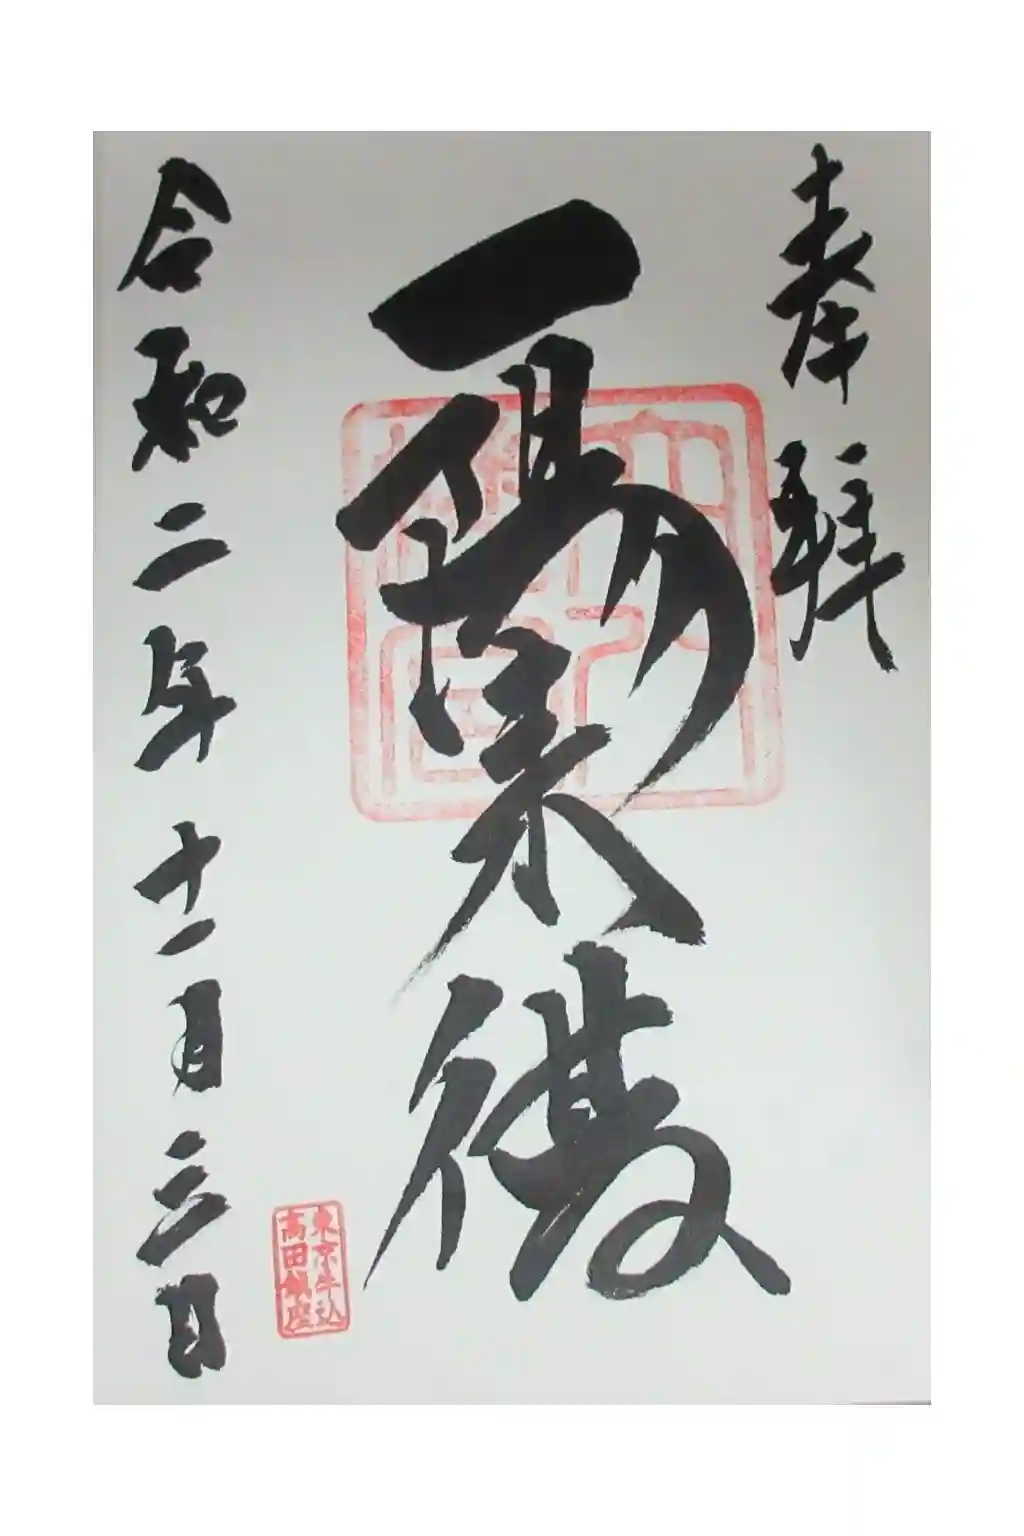 奉拝
一陽来復
令和二年十一月三日
東京牛込
高田鎮座